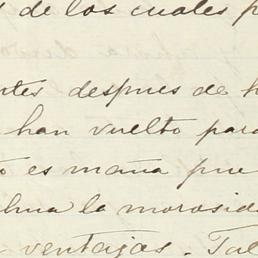 de los cuales p
ntes despues de h
han vuelto para
o es maña que
la morosid
ventajas. Tal